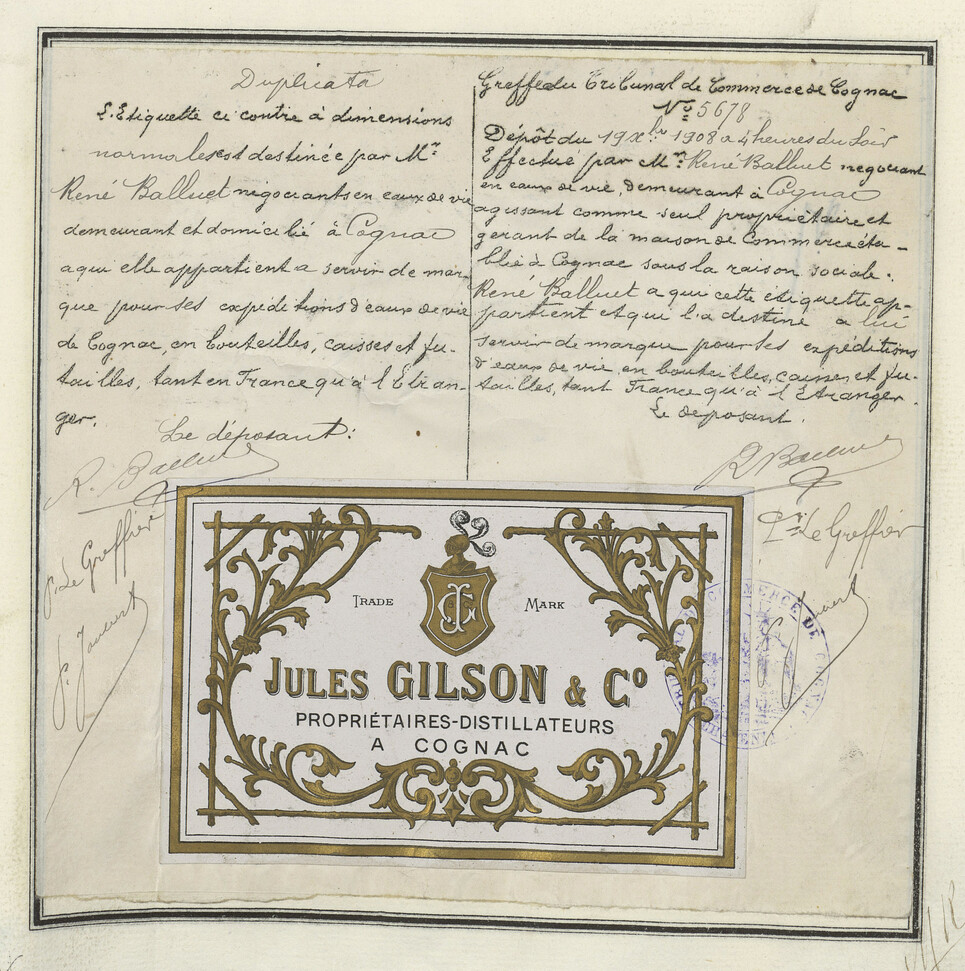 Duplicata
L'Etiquette ci contre à dimensions
normales est destinée par Mr
René Balluet négociants en eaux de vie
demeurant et domicilié à Cognac
a qui elle appartient a servir de mar-
que pour ses expéditions d'eaux de vie
de Cognac, en bouteilles, caisses et fu-
tailles, tant en France qu'à l'Etran-
ger.
Le déposant:
R. Balluet
Pr le Greffier
Greffe du Tribunal de Commerce de Cognac
No 5678
Dépôt du 19 Xbre 1908 a 4 heures du Soir
Effectué par Mr René Balluet negociant
en eaux de vie demeurant à Cognac
agissant comme seul propriétaire et
gerant de la maison de Commerce éta-
blie à Cognac sous la raison sociale.
René Balluet a qui cette étiquette ap-
partient et qui l'a destine a lui
servir de marque pour ses expéditions
d'eaux de vie en bouteilles, caisses et fu-
tailles, tant France qu'à l'Etranger.
Le deposant.
R Balluet
Pr le Greffier
TRADE MARK
JULES GILSON & Co
PROPRIÉTAIRES-DISTILLATEURS
A COGNAC